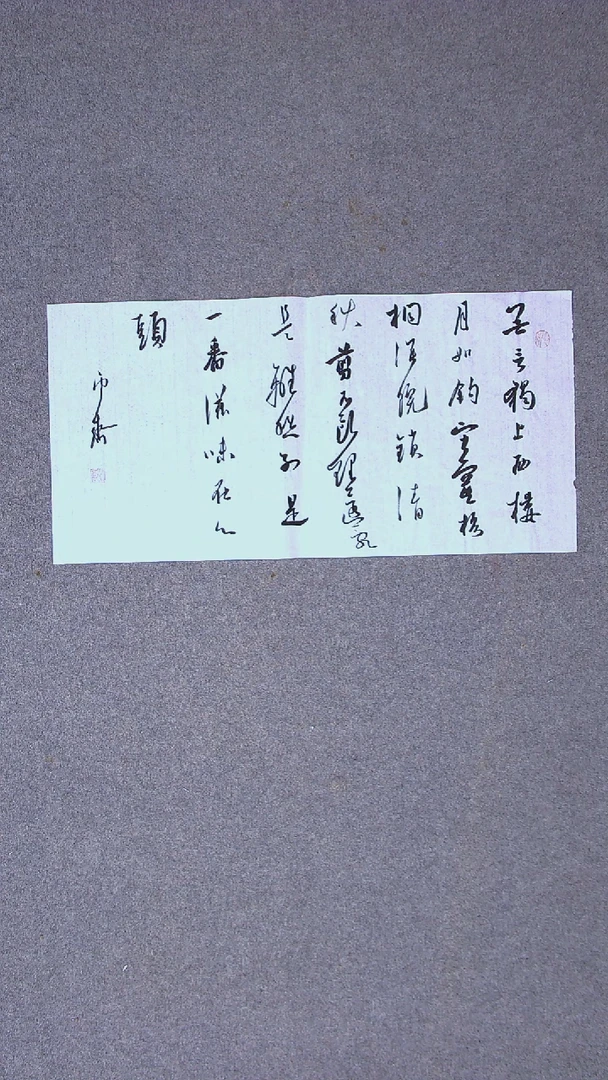 無言獨上西樓
月如鈎寂寞梧
桐深院鎖清
秋剪不斷理還亂
是離愁別是
一番滋味在心
頭